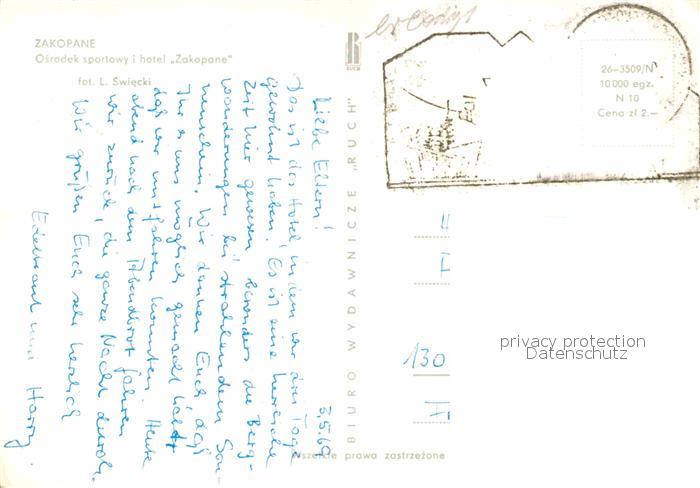 ZAKOPANE
Ośrodek sportowy i hotel „Zakopane"
fot. L. Święcki
3.5.69
Liebe Eltern!
Das ist das Hotel, in dem wir drei Tage
gewohnt haben. Es ist eine herrliche
Zeit hier gewesen, besonders die Berg-
wanderungen bei strahlendem Son-
nenschein. Wir danken Euch, daß
Ihr es uns möglich gemacht habt,
daß wir mitfahren konnten. Heute
abend nach dem Abendbrot fahren
wir zurück, die ganze Nacht durch.
Wir grüßen Euch sehr herzlich
Edeltraut und Harry.
BIURO WYDAWNICZE „RUCH"
RUCH
26—3509/N
10 000 egz.
N 10
Cena zł 2.—
130
privacy protection
Datenschutz
Wszelkie prawa zastrzeżone